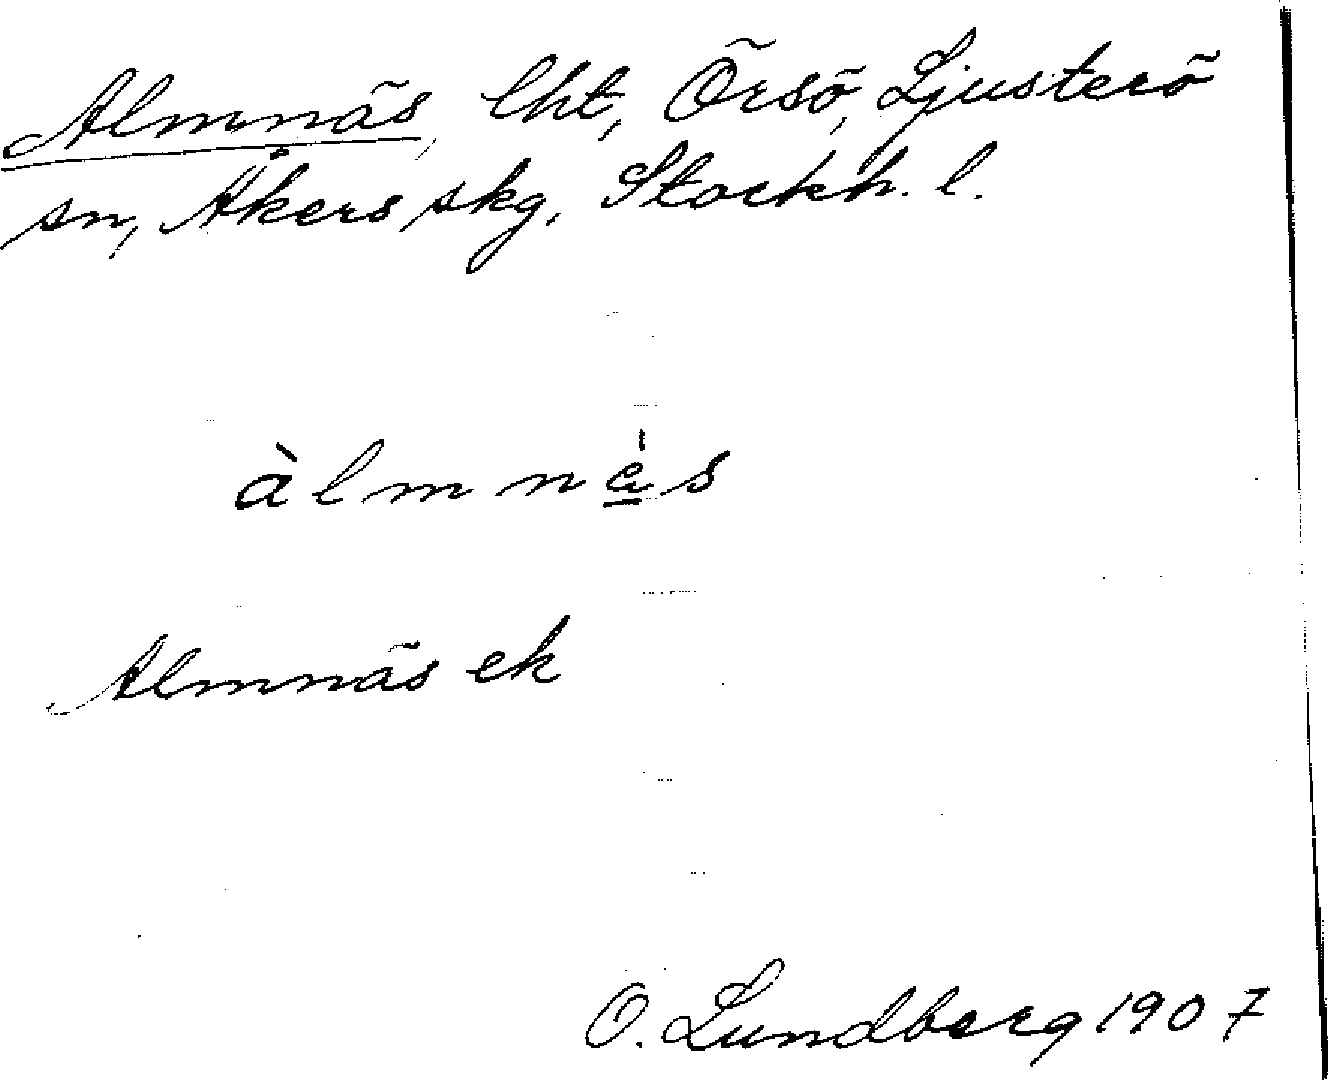 Almnäs, lht, Örsö, Ljusterö
sn, Åkers skg, Stockh. l.
àlmnäs
Almnäs ek
O. Lundberg 1907